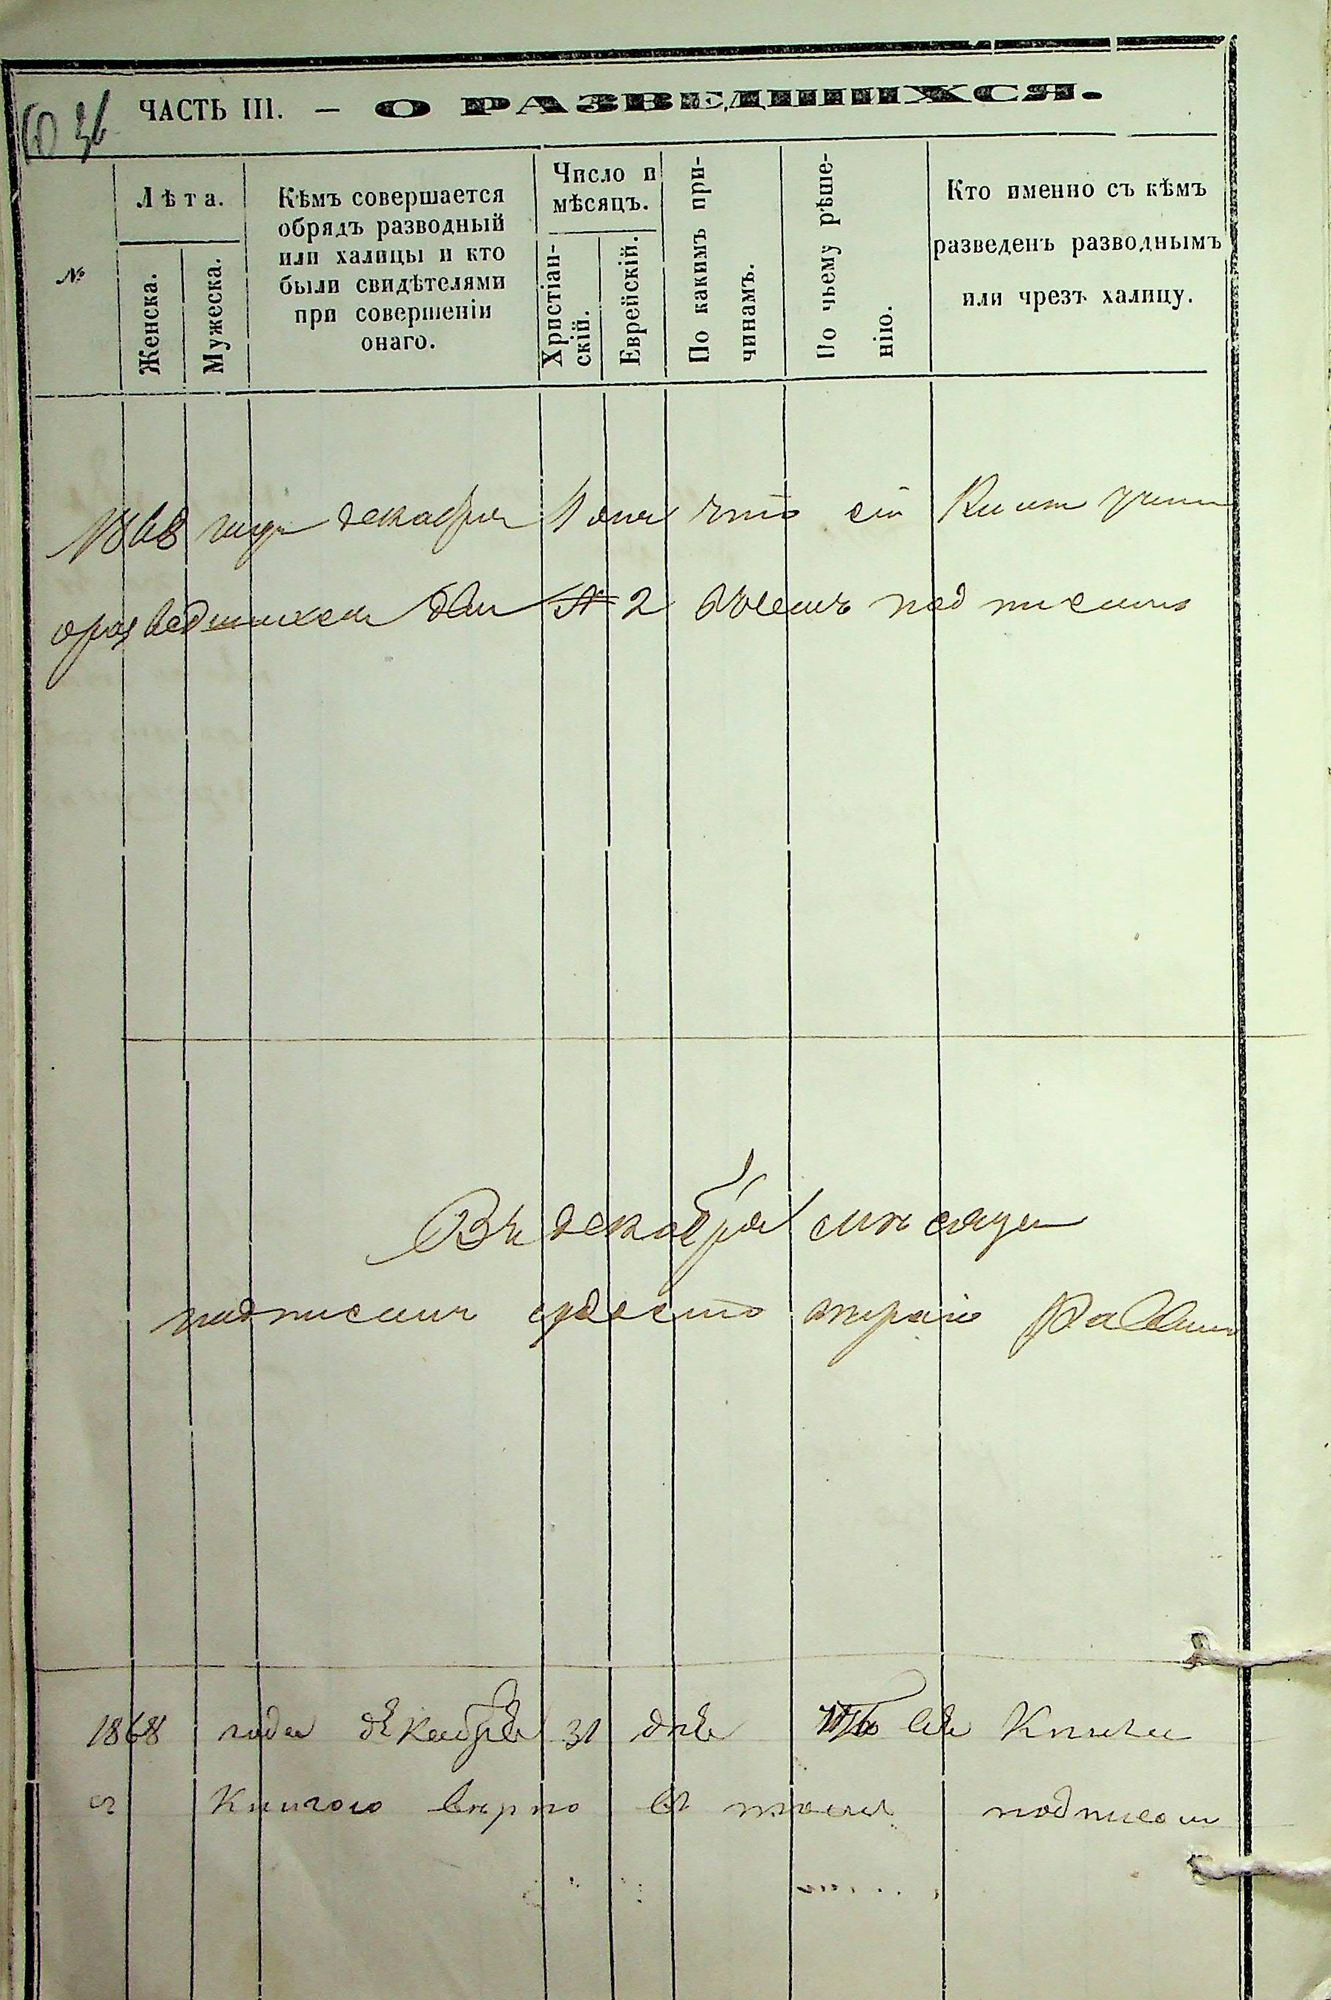 36
ЧАСТЬ III. — О РАЗВЕДШИХСЯ.
№
Лѣта.
Женска.
Мужеска.
Кѣмъ совершается
обрядъ разводный
или халицы и кто
были свидѣтелями
при совершеніи
онаго.
Число и
мѣсяцъ.
Христіан-
скій.
Еврейскій.
По какимъ при-
чинамъ.
По чьему рѣше-
нію.
Кто именно съ кѣмъ
разведенъ разводнымъ
или чрезъ халицу.
1868 года декабря дня что сіи
оразведшихся № 2 въ чемъ подписомъ
Въ декабря мѣсяцѣ
подписомъ удосто
1868 года декабря 31 дня что сія Книга
съ Книгою вѣрно въ томъ подписом